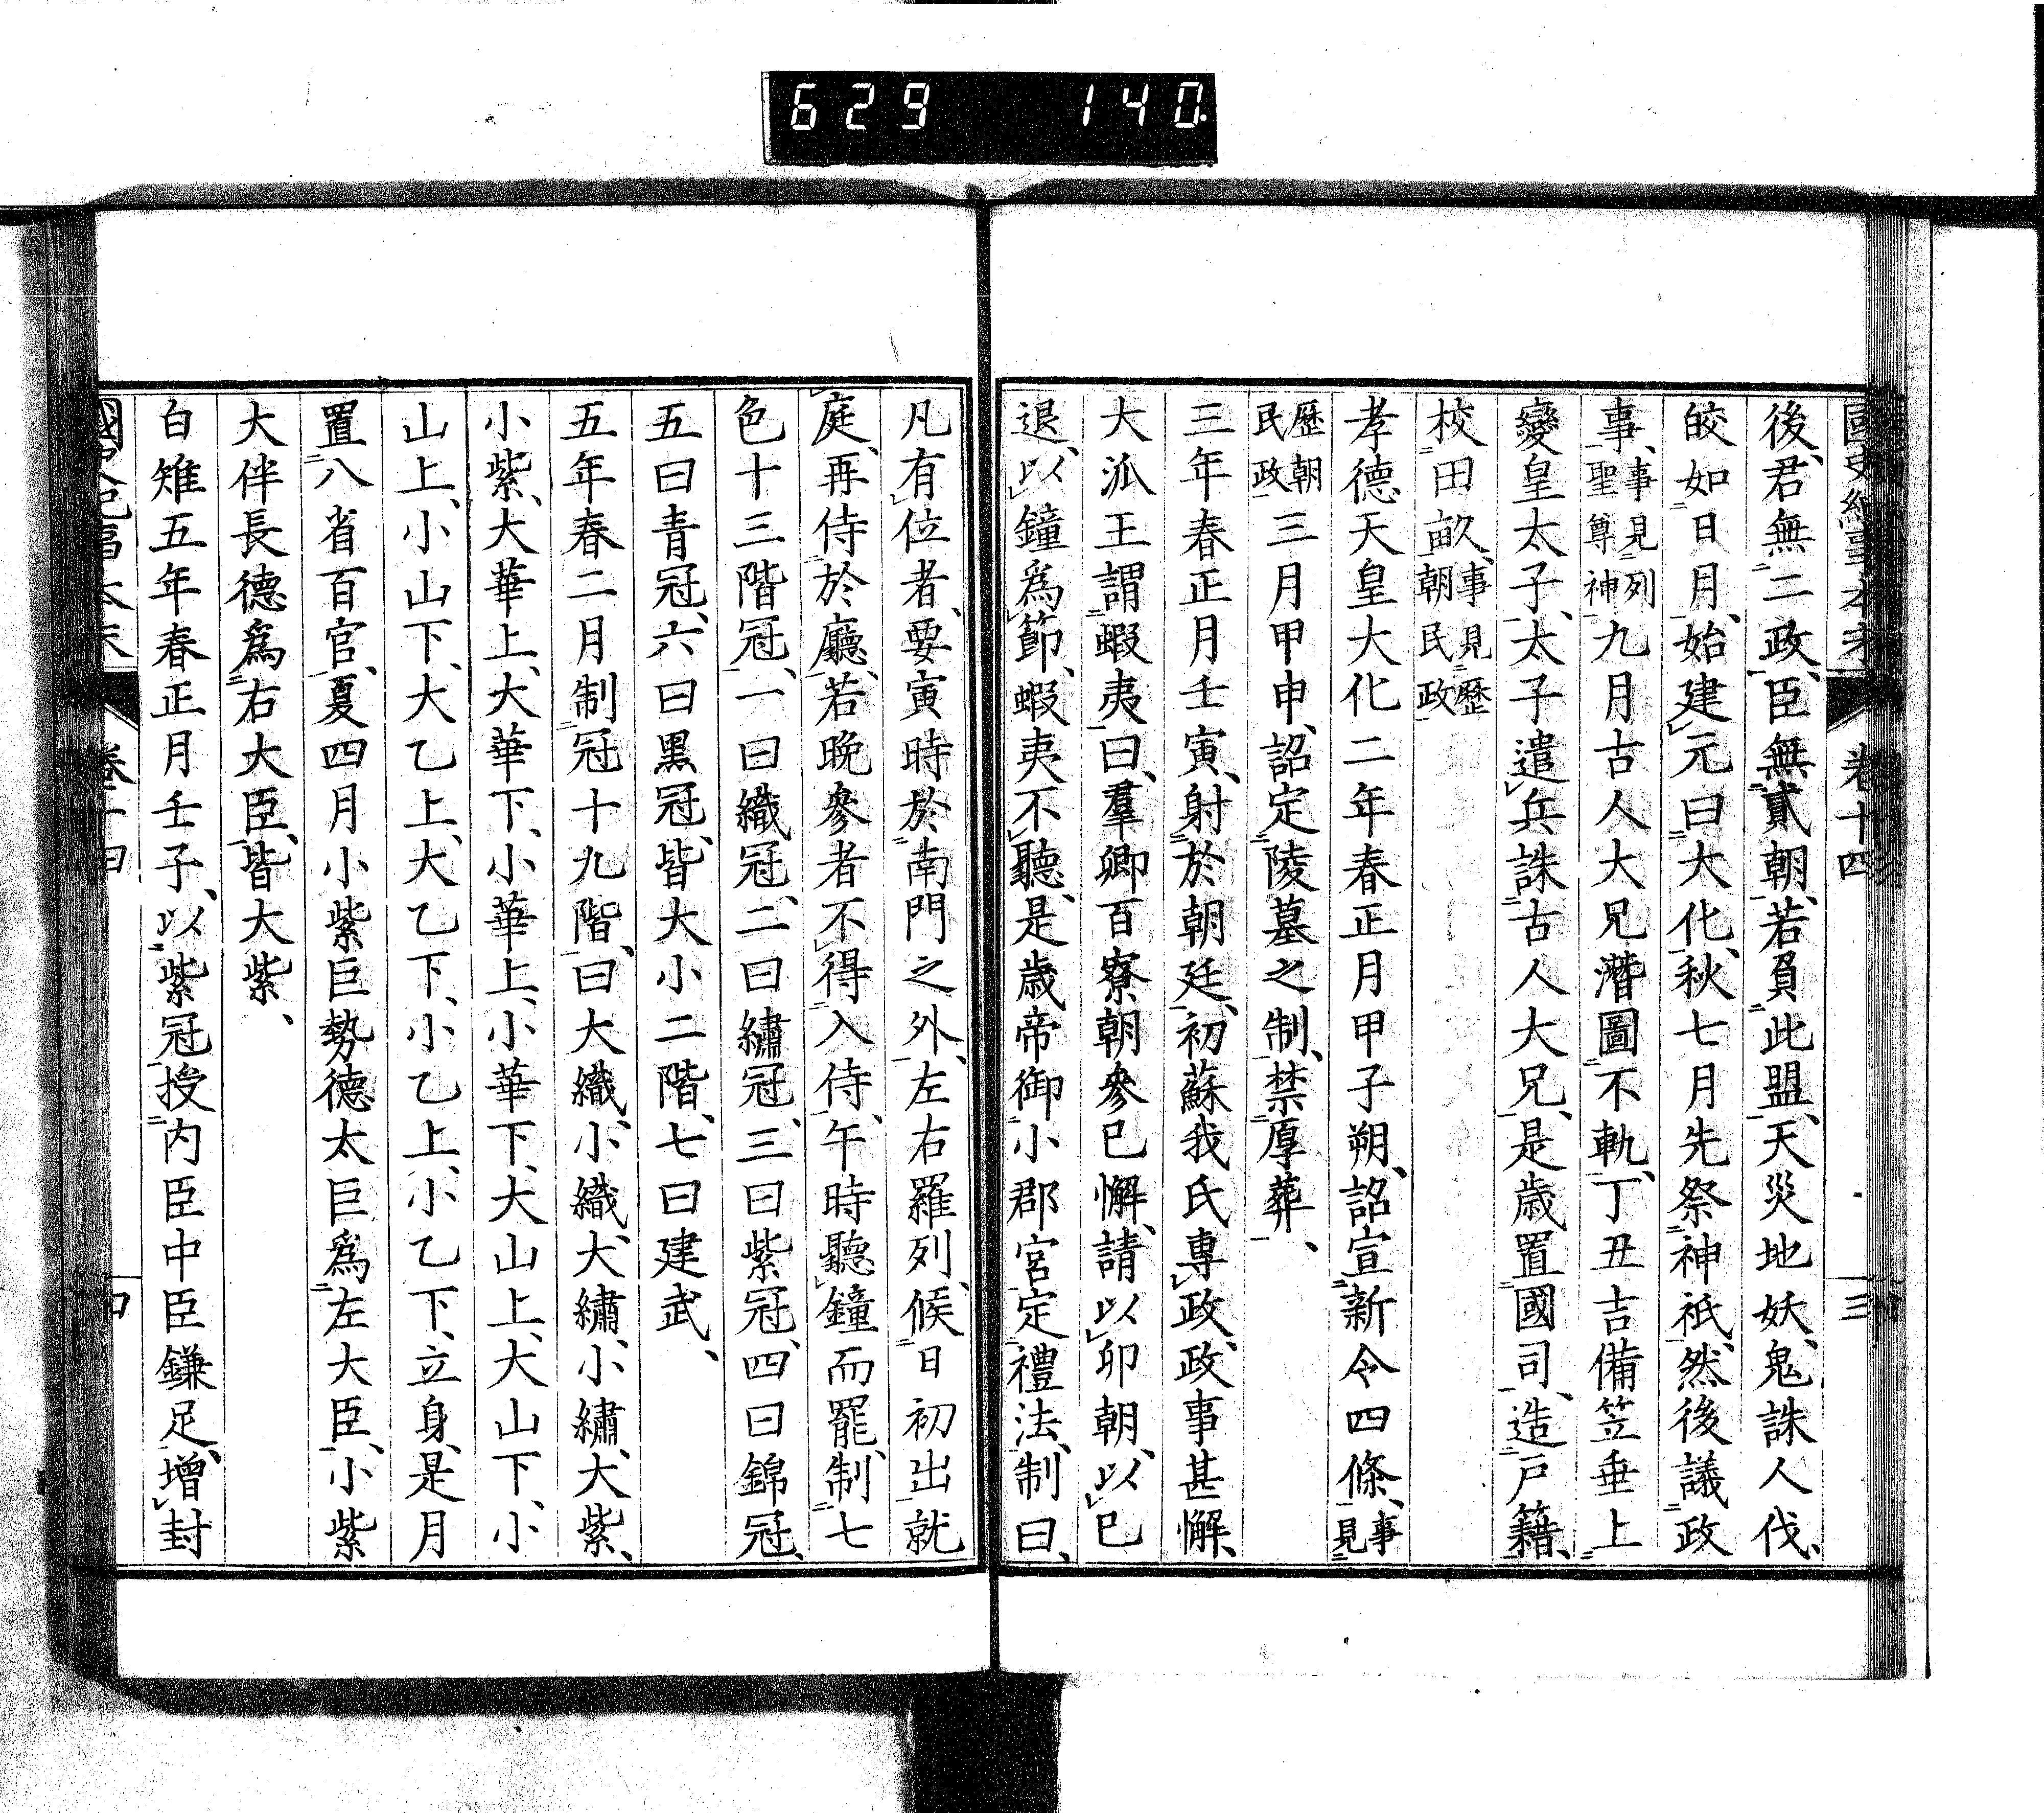 629 140
國史紀事本末 卷十四 十三
後、君無二政、臣無貳朝、若負此盟、天災地妖、鬼誅人伐、
皎如日月、始建元曰大化、秋七月先祭神祇、然後議政
事、事見列聖尊神九月古人大兄潛圖不軌、丁丑吉備笠垂上
變皇太子、太子遣兵誅古人大兄、是歲置國司、造戶籍、
校田畝、事見歷朝民政
孝德天皇大化二年春正月甲子朔、詔宣新令四條、事見
歷朝民政三月甲申、詔定陵墓之制、禁厚葬、
三年春正月壬寅、射於朝廷、初蘇我氏專政、政事甚懈、
大派王謂蝦夷曰、羣卿百寮朝參已懈、請以卯朝、以巳
退、以鐘爲節、蝦夷不聽、是歲帝御小郡宮定禮法、制曰、
凡有位者、要寅時於南門之外、左右羅列、候日初出就
庭、再侍於廳、若晚參者不得入侍、午時聽鐘而罷、制七
色十三階冠、一曰織冠、二曰繡冠、三曰紫冠、四曰錦冠、
五曰青冠、六曰黑冠、皆大小二階、七曰建武、
五年春二月制冠十九階、曰大織、小織、大繡、小繡、大紫、
小紫、大華上、大華下、小華上、小華下、大山上、大山下、小
山上、小山下、大乙上、大乙下、小乙上、小乙下、立身、是月
置八省百官、夏四月小紫巨勢德太巨爲左大臣、小紫
大伴長德爲右大臣、皆大紫、
白雉五年春正月壬子、以紫冠授内臣中臣鎌足、增封